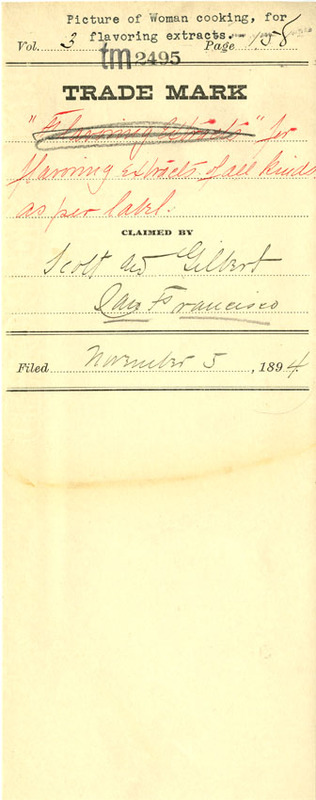 Picture of Woman cooking, for
flavoring extracts.
Vol. 3 Page 158
tm 2495
TRADE MARK
"Flavoring Extracts" for
flavoring extracts of all kinds
as per label.
CLAIMED BY
Scott and Gilbert
San Francisco
Filed November 5, 1894.